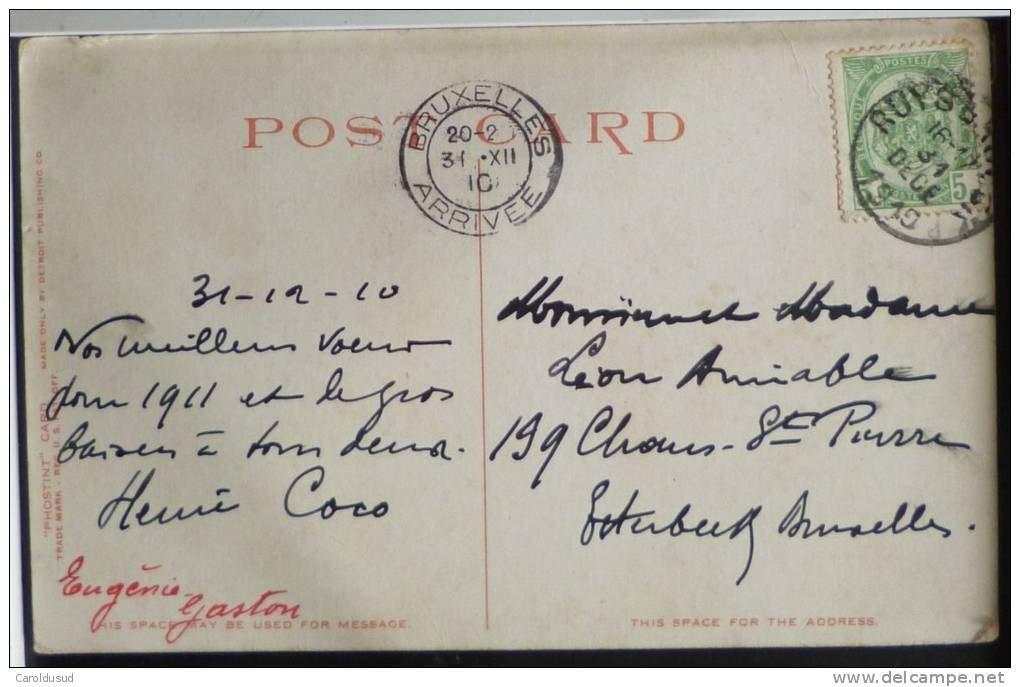 POST CARD
BRUXELLES
20-2
31 · XII
10
ARRIVÉE
POSTES
5
RUYSBROECK
16
31
DECE
1910
31-12-10
Nos meilleurs voeux
pour 1911 et de gros
baisers à tous deux.
Henri Coco
Eugénie
Gaston
Monsieur et Madame
Léon Amiable
139 Chaus. St Pierre
Etterbeek Bruxelles.
"PHOSTINT" CARD MADE ONLY BY DETROIT PUBLISHING CO.
TRADE MARK - REG. U. S. OFF.
HIS SPACE MAY BE USED FOR MESSAGE.
THIS SPACE FOR THE ADDRESS.
Caroldusud
www.delcampe.net